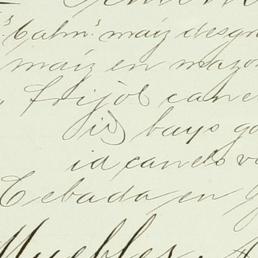 "cahn" maíz desgr
maíz en mazo
" frijol cane
id bayo go
id canelo v
Cebada en g
Muebles.